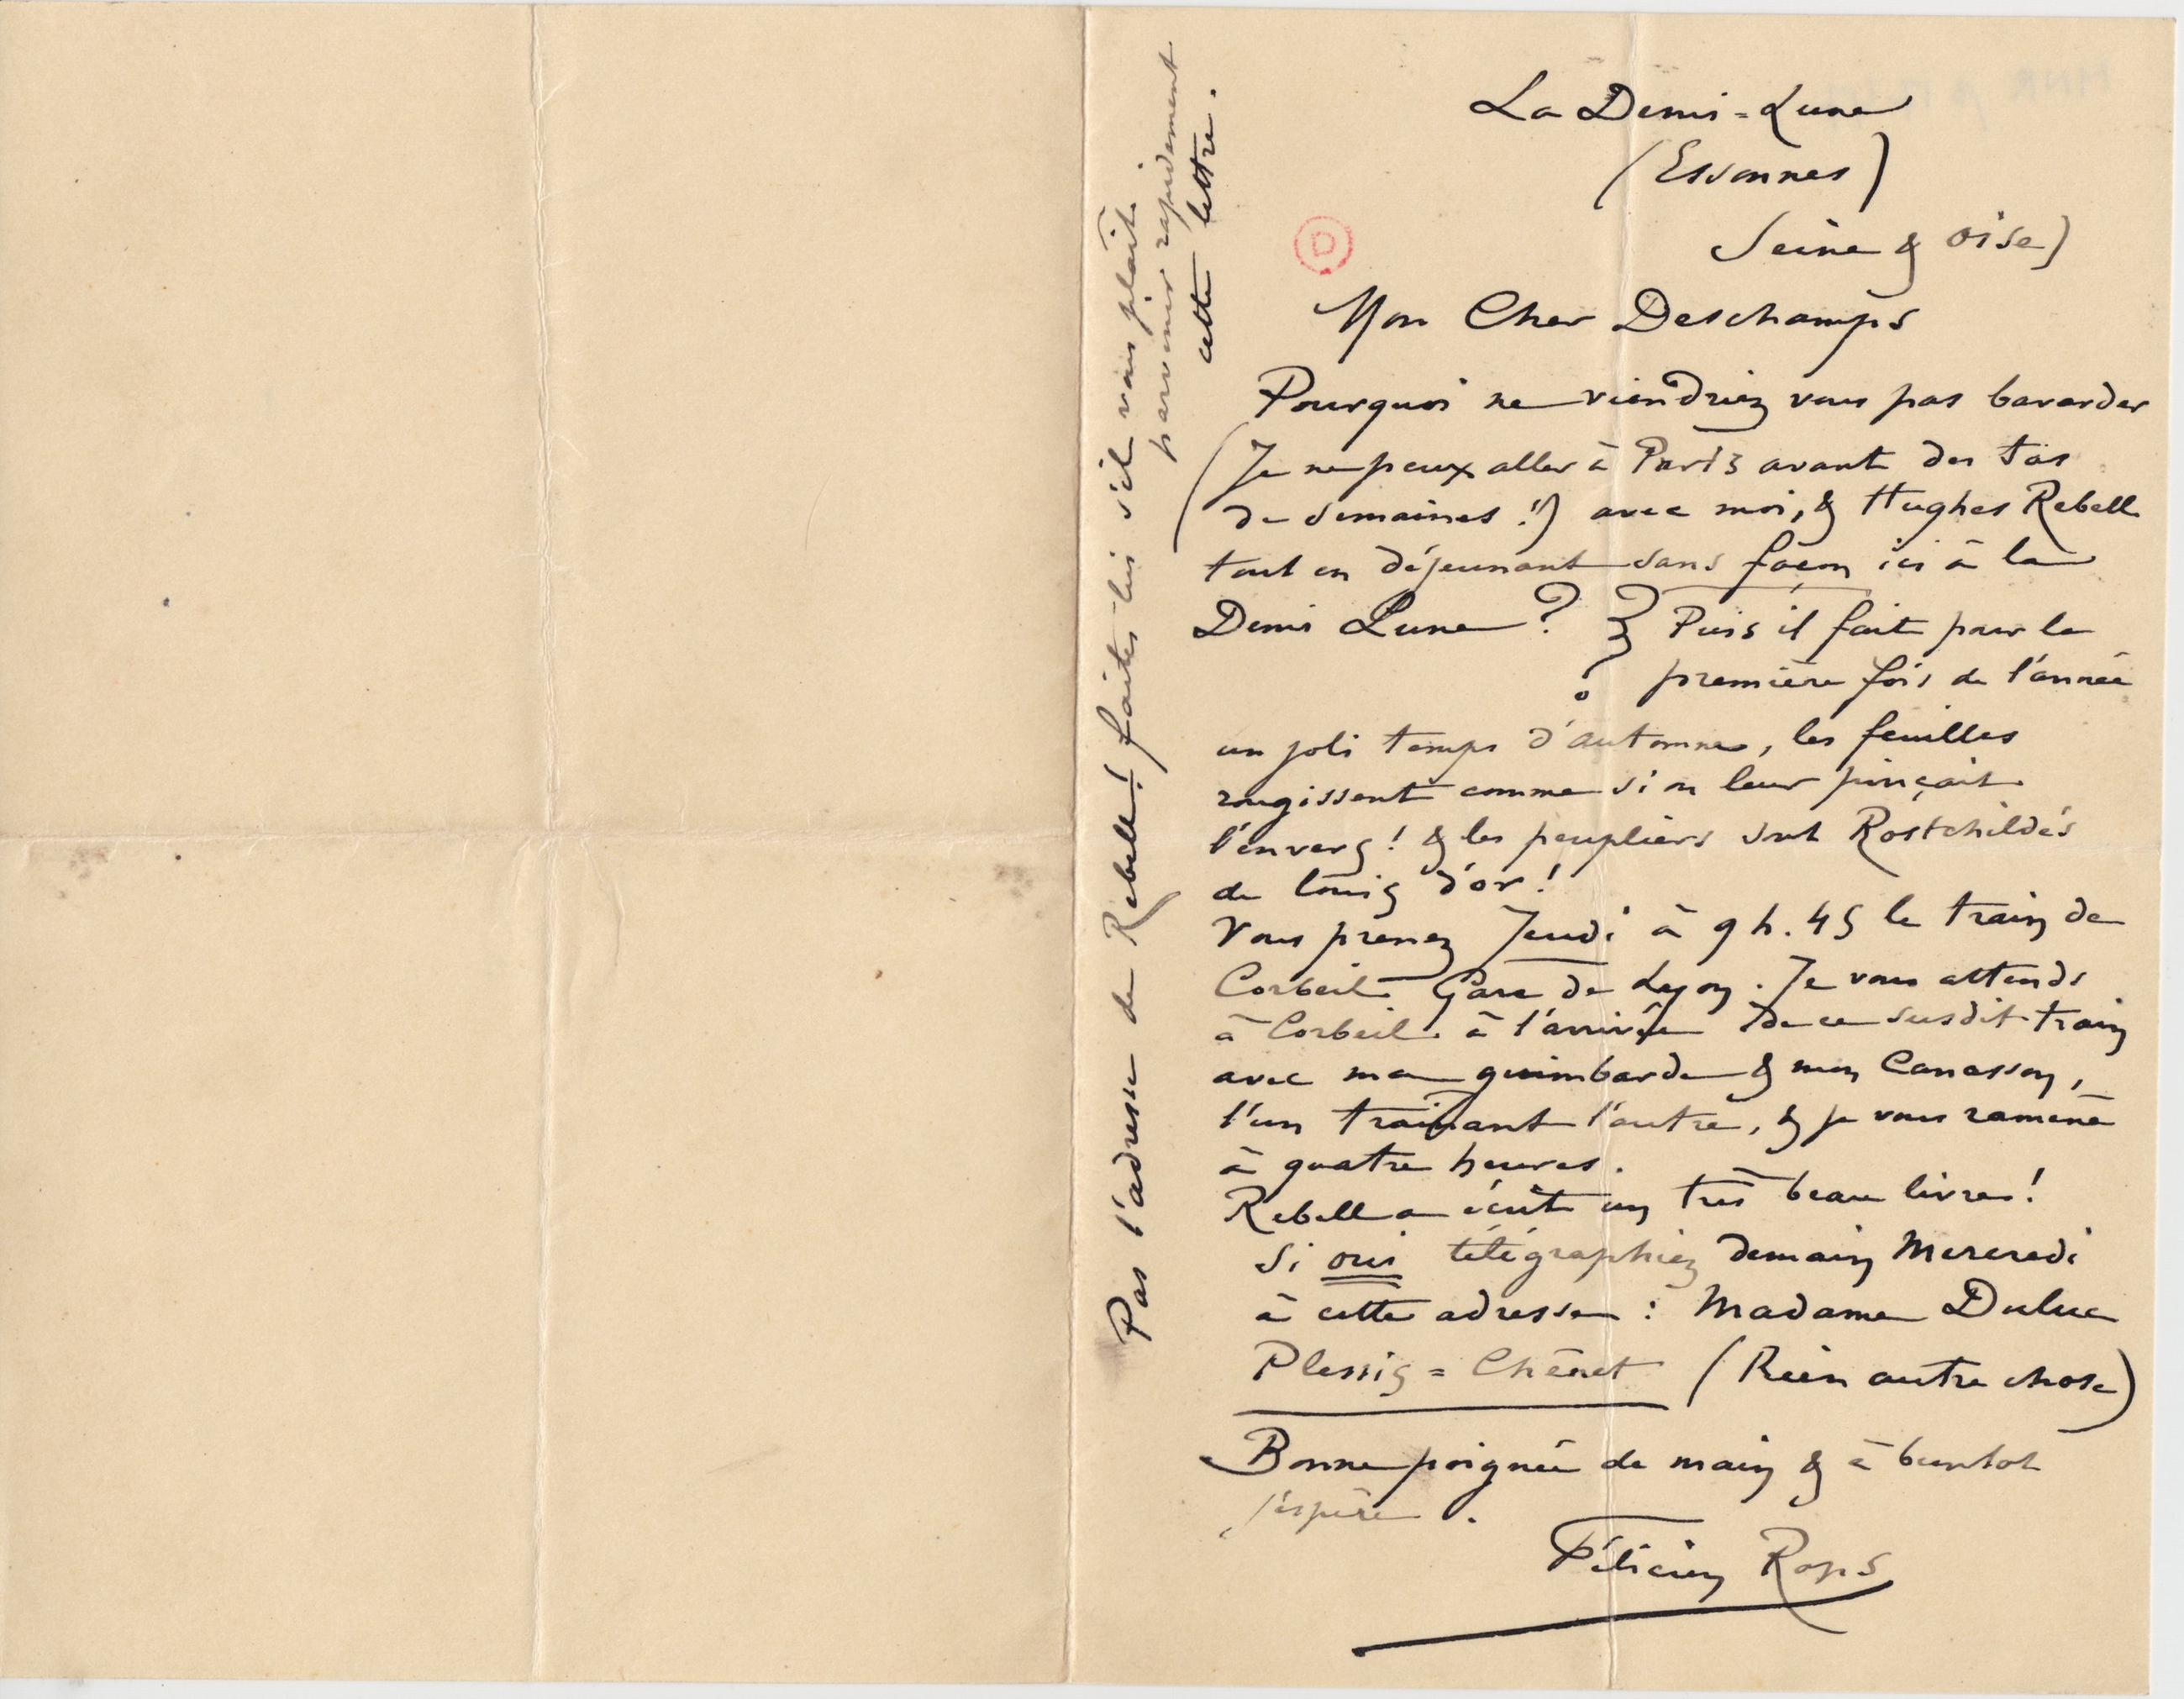 La Demi-Lune
(Essonnes)
Seine & Oise)
D
Mon Cher Deschamps
Pourquoi ne viendriez vous pas bavarder
(Je ne peux aller à Paris avant des tas
de semaines !!) avec moi, & Hughes Rebell
tout en déjeunant sans façon ici à la
Demi Lune ? Puis il fait pour la
première fois de l'année
un joli temps d'automne, les feuilles
rougissent comme si on leur pinçait
l'envers ! & les peupliers sont Rostchildés
de louis d'or !
Vous prenez Jeudi à 9 h. 45 le train de
Corbeil Gare de Lyon. Je vous attends
à Corbeil à l'arrivée de ce susdit train
avec ma guimbarde & mon Canasson,
l'un trainant l'autre, & je vous ramène
à quatre heures.
Rebell a écrit un très beau livre !
Si oui télégraphiez demain Mercredi
à cette adresse : Madame Duluc
Plessis=Chênet (Rien autre chose)
Bonne poignée de main & à bientot
j'espère.
Félicien Rops
Pas l'adresse de Rebell ! faites-lui s'il vous plait
parvenir rapidement
cette lettre.